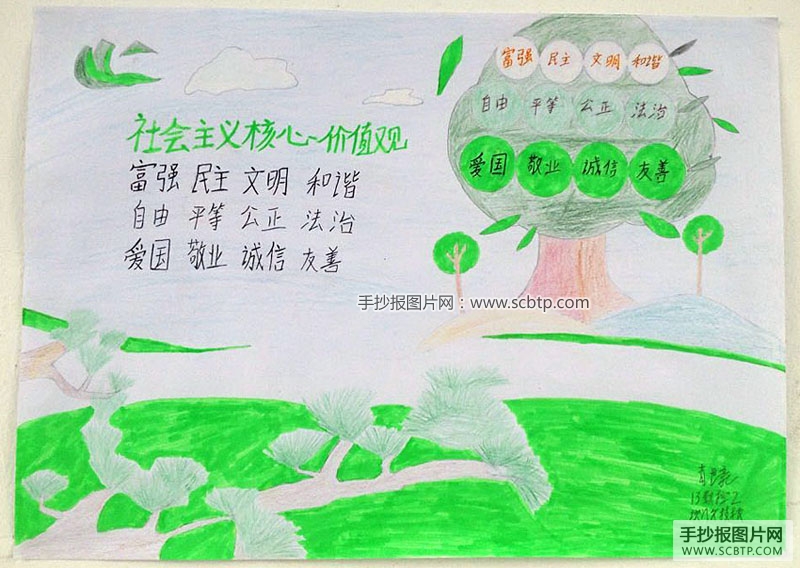 富强 民主 文明 和谐
自由 平等 公正 法治
爱国 敬业 诚信 友善
社会主义核心价值观
富强 民主 文明 和谐
自由 平等 公正 法治
爱国 敬业 诚信 友善
手抄报图片网：www.scbtp.com
手抄报图片网
WWW.SCBTP.COM